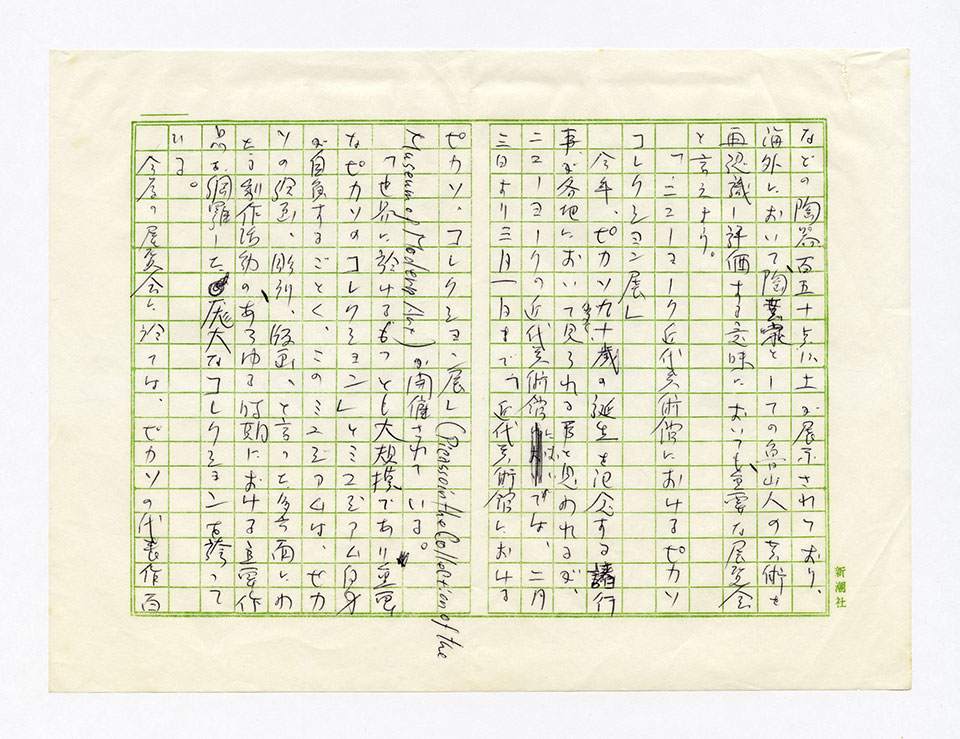 などの陶器百五十点以上が展示されており、
海外において陶芸家としての魯山人の芸術を
再認識し評価する意味においても重要な展覧会
と言えよう。
「ニューヨーク近代美術館におけるピカソ
コレクション展」
今年、ピカソ九十歳の誕生を記念する諸行
事が各地において見られる事と思われるが、
ニューヨークの近代美術館では、二月
三日より三月一日まで「近代美術館における
ピカソ・コレクション展」(Picasso in the Collection of the
Museum of Modern Art)が開催されている。
「世界に於けるもっとも大規模であり重要
なピカソのコレクション」とミュゼアム自身
が自負するごとく、このミュゼアムは、ピカ
ソの絵画、彫刻、版画、と言った多方面にわ
たる創作活動のあらゆる時期における重要作
品を網羅した厖大なコレクションを誇って
いる。
今度の展覧会に於ては、ピカソの代表作百
新潮社